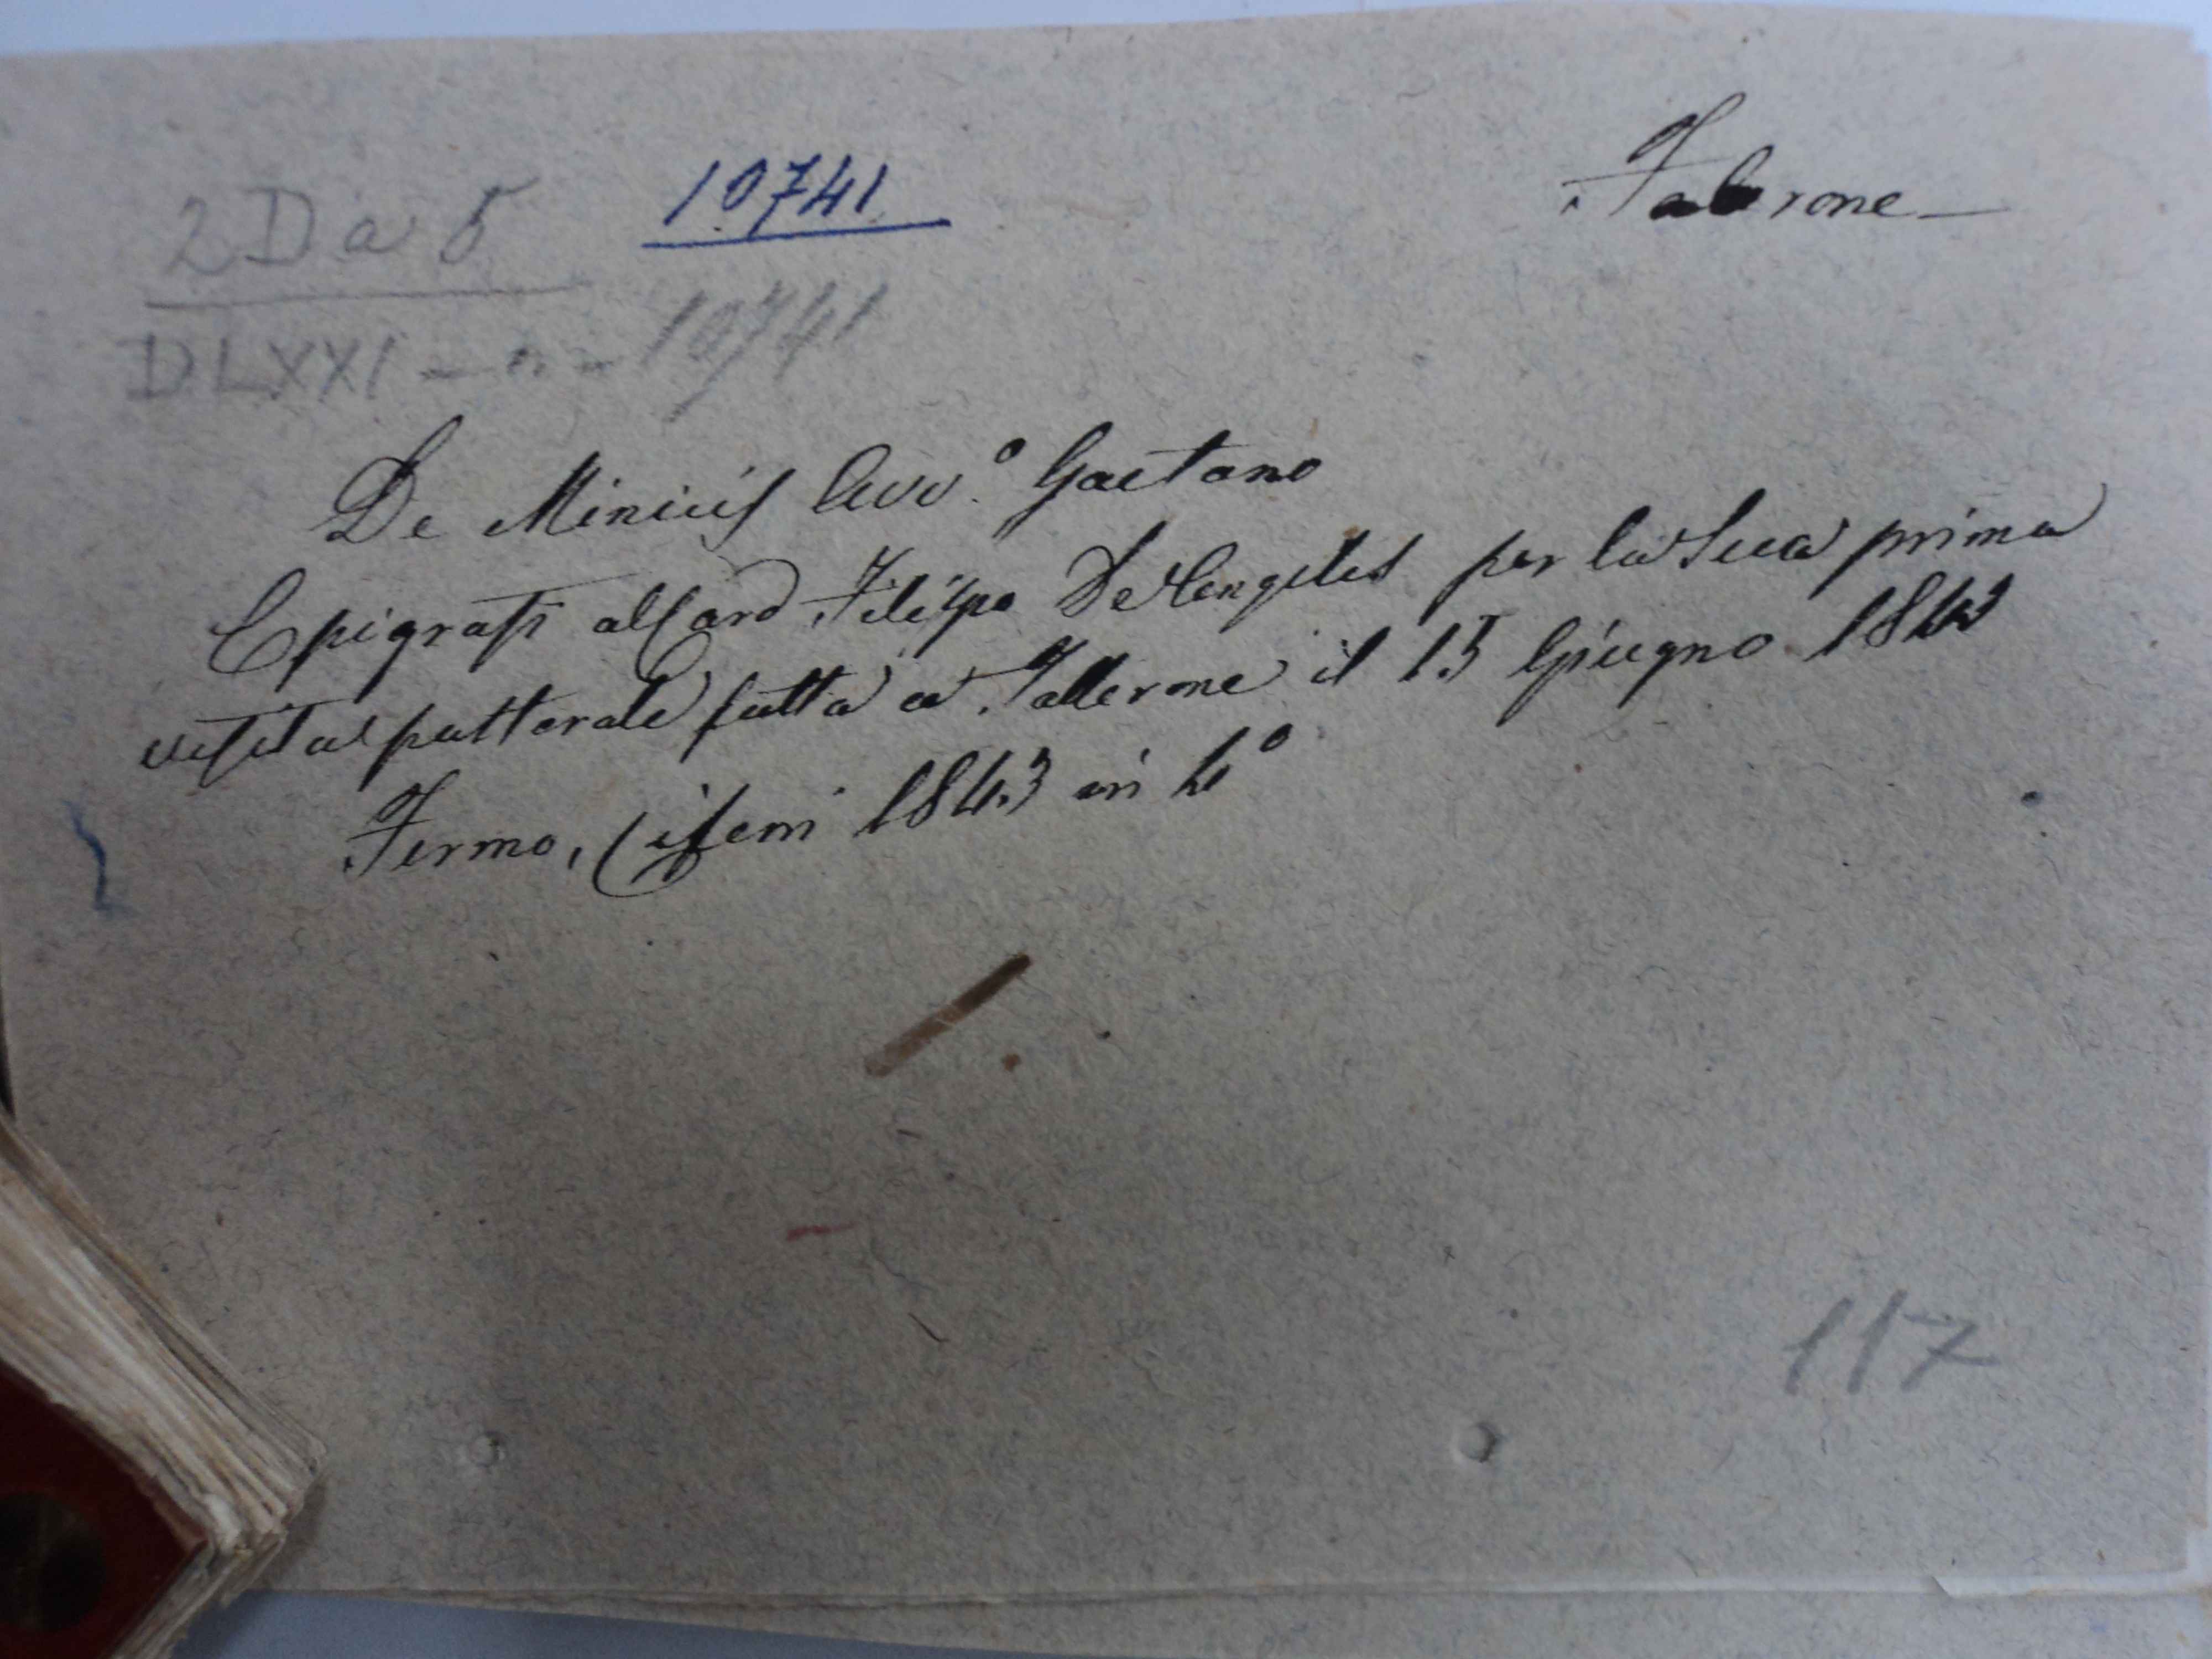 Falerone
2 D a 5
10741
DLXXI - n - 10741
De Minicis Avv.o Gaetano
Epigrafi al Card Filippo De Angelis per la Sua prima
visita pastorale fatta a Fallerone il 15 Giugno 1843
Fermo, Ciferri 1843 in 4°
117